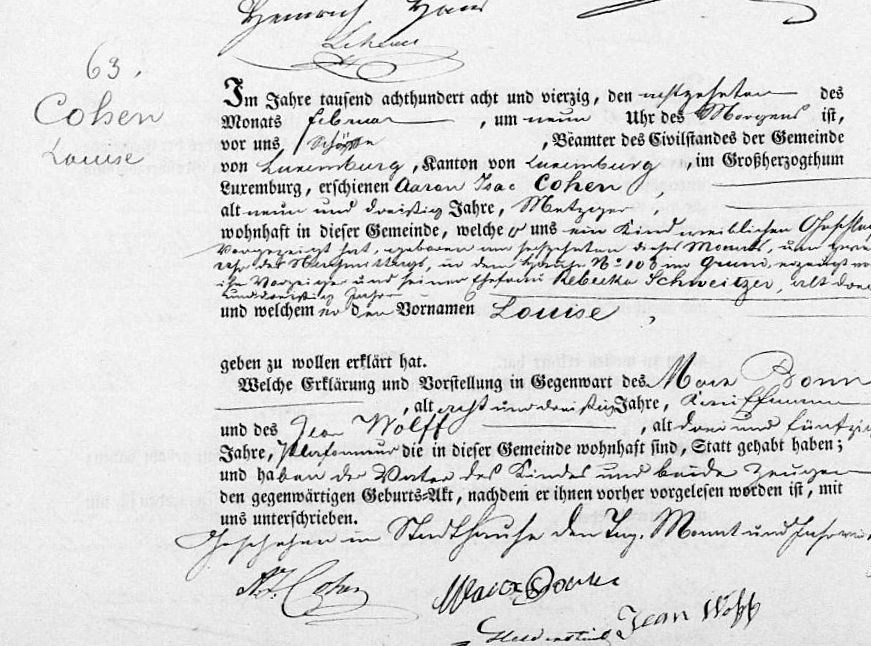 Heinrich Hans
63.
Cohen
Louise
Im Jahre tausend achthundert acht und vierzig, den achtzehnten des
Monats februar, um neun Uhr des Morgens ist,
vor uns Schöffe, Beamter des Civilstandes der Gemeinde
von Luxemburg, Kanton von Luxemburg, im Großherzogthum
Luxemburg, erschienen Aaron Isac Cohen
alt neun und dreißig Jahre, Metzger,
wohnhaft in dieser Gemeinde, welcher uns ein Kind weiblichen Geschlechts
vorgezeigt hat, geboren am sechzehnten dieses Monats, um zwei
Uhr des Nachmittags, in dem Hause No 108 im Grund, erzeugt von
ihm Vorzeiger und seiner Ehefrau Rebecka Schweitzer, alt drei
und dreißig Jahre
und welchem er den Vornamen Louise,
geben zu wollen erklärt hat.
Welche Erklärung und Vorstellung in Gegenwart des Marx Bonn
, alt acht und dreißig Jahre, Kauffmann
und des Jean Wolff, alt drei und fünfzig
Jahre, Plafonneur die in dieser Gemeinde wohnhaft sind, Statt gehabt haben;
und haben der Vater des Kindes und beide Zeugen
den gegenwärtigen Geburts-Akt, nachdem er ihnen vorher vorgelesen worden ist, mit
uns unterschrieben.
Geschehen im Stadthause den Tag, Monat und Jahr wie
A. I. Cohen
Marx
Jean Wolff